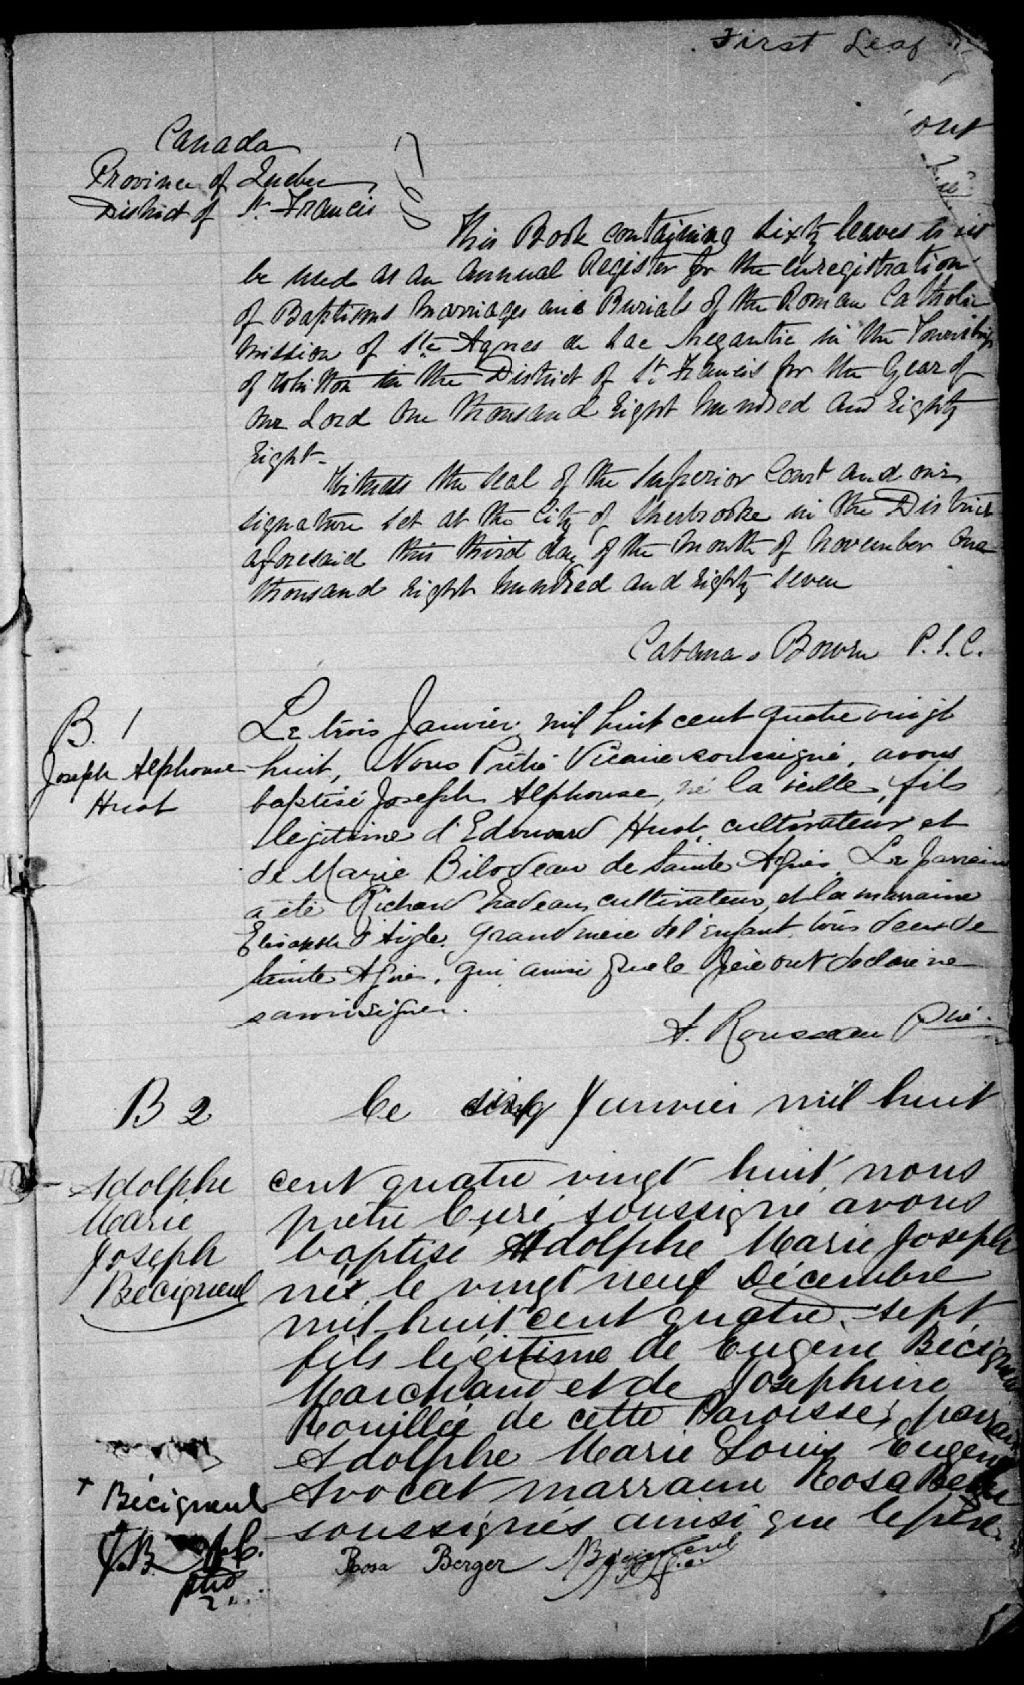 First Leaf
out
Canada
Province of Quebec
District of St. Francis
This Book containing sixty leaves is to
be used as an annual Register for the enregistration
of Baptisms Marriages and Burials of the Roman Catholic
Mission of Ste Agnes de Lac Megantic in the Township
of Whitton in the District of St. Francis for the Year of
Our Lord One thousand Eight hundred and Eighty
Eight.
Witness the seal of the Superior Court and our
signature set at the City of Sherbrooke in the District
aforesaid this third day of the month of November One
thousand Eight hundred and Eighty seven
Cabana & Bowen P.S.C.
B. 1
Joseph Alphonse
Huot
Le trois Janvier, mil huit cent quatre vingt
huit, Nous Prêtre Vicaire soussigné, avons
baptisé Joseph Alphonse, né la veille, fils
légitime d'Edouard Huot, cultivateur et
de Marie Bilodeau de Sainte Agnès. Le parrain
a été Richard Nadeau, cultivateur, et la marraine
Elisabeth d'Aigle, grand'mère de l'enfant, tous deux de
Sainte Agnès, qui ainsi que le père ont déclaré ne
savoir signer.
A. Rousseau Ptre.
B 2
Adolphe
Marie
Joseph
Bécigneul
Ce cinq Janvier mil huit
cent quatre vingt huit, nous
prêtre Curé soussigné avons
baptisé Adolphe Marie Joseph
né le vingt neuf Décembre
mil huit cent quatre. sept
fils légitime de Eugène Bécigneul
Marchand et de Joséphine
Rouillée de cette Paroisse, parrain
Adolphe Marie Louis Eugène
Avocat marraine Rosa
soussignés ainsi que le père.
+ Bécigneul
J.B.
ptre
Rosa Berger Bécigneul